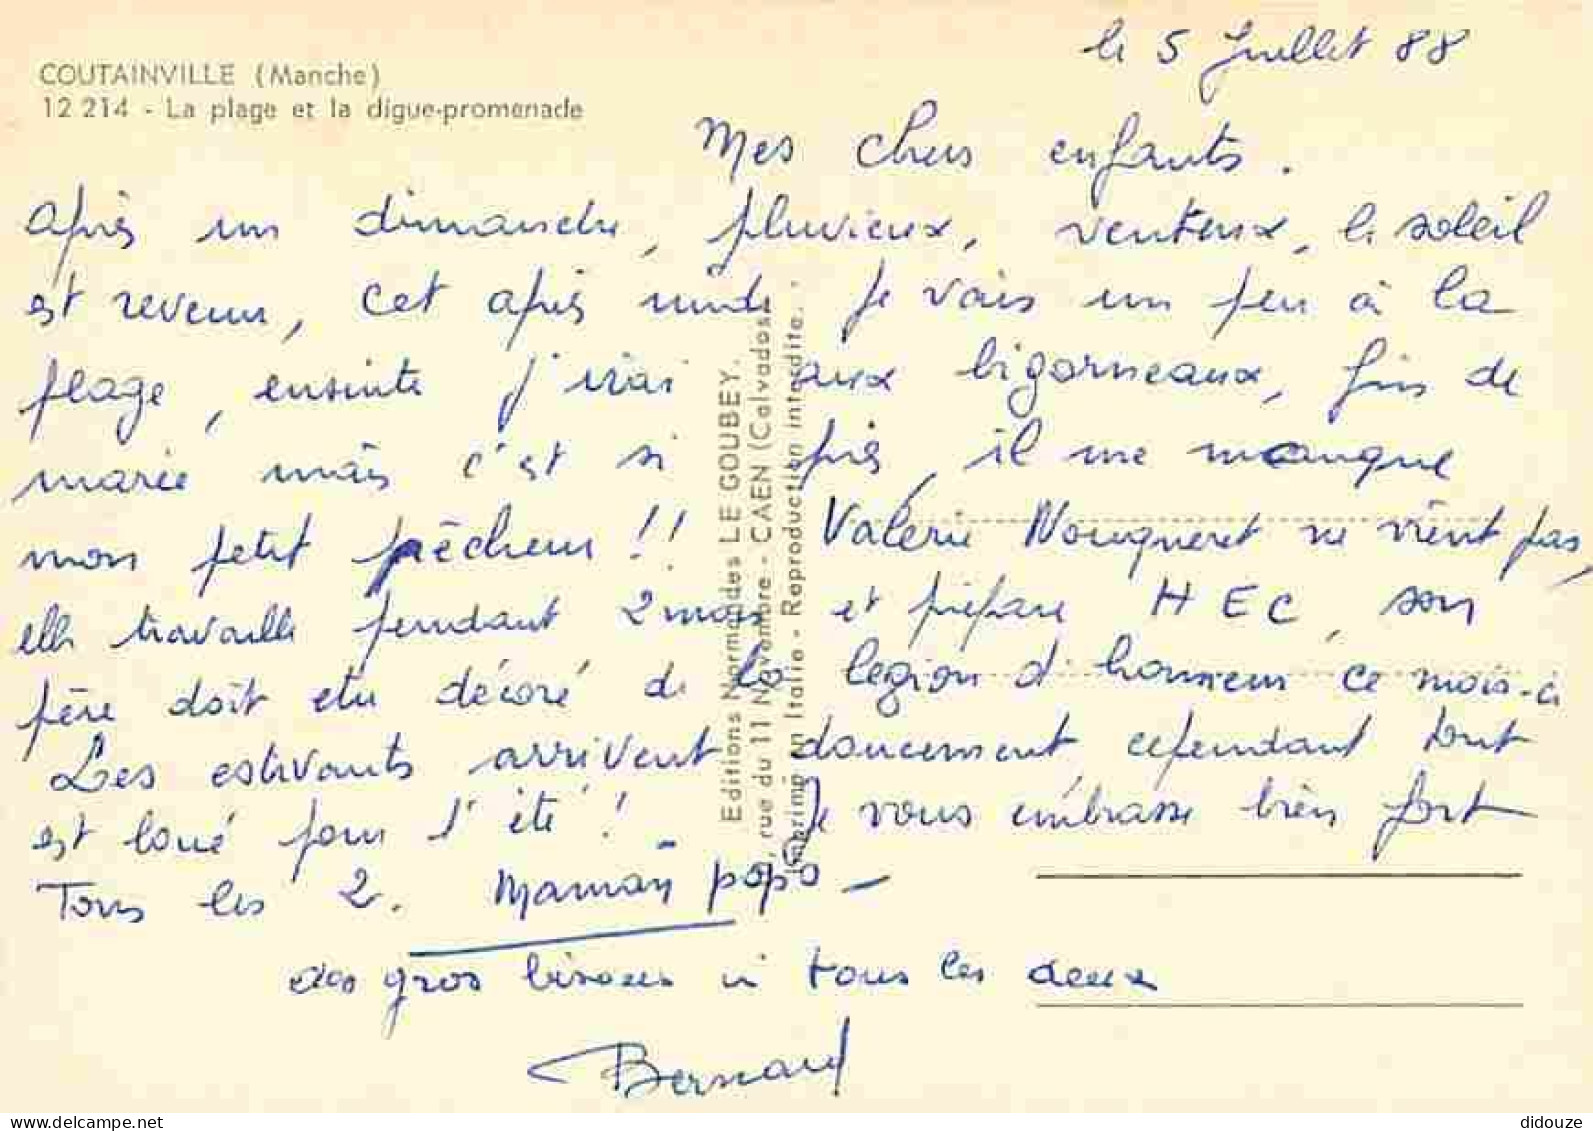 le 5 Juillet 88
COUTAINVILLE (Manche)
12 214 - La plage et la digue-promenade
Mes chers enfants.
après un dimanche, pluvieux, venteux, le soleil
est revenu, cet après midi je vais un peu à la
plage, ensuite j'irai aux bigorneaux, fins de
marée mais c'est si près, il me manque
mon petit pêcheur !! Valérie Nouqueret ne vient pas,
elle travaille pendant 2 mois et prépare HEC, son
père doit etre décoré de la légion d'honneur ce mois-ci
Les estivants arrivent doucement cependant tout
est loué pour l'été ! Je vous embrasse bien fort
Tous les 2. Maman popo -
des gros bisous à tous les deux
Bernard
Editions Normandes LE GOUBEY.
, rue du 11 Novembre - CAEN (Calvados)
Imprimé en Italie - Reproduction interdite.
didouze